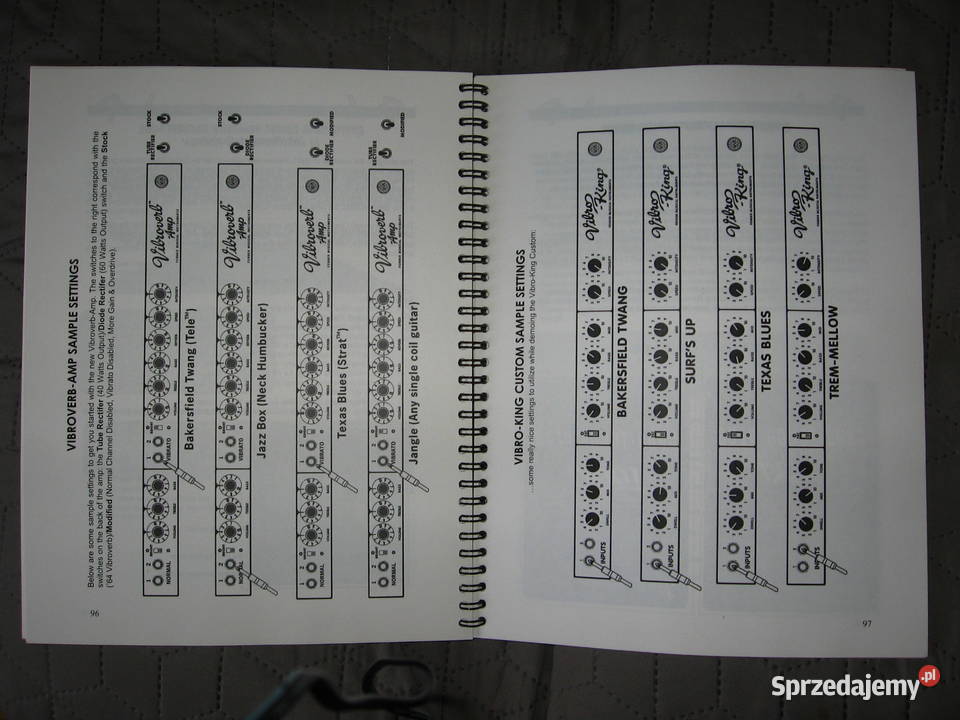 VIBROVERB-AMP SAMPLE SETTINGS
Below are some sample settings to get you started with the new Vibroverb-Amp. The switches to the right correspond with the
switches on the back of the amp: the Tube Rectifer (40 Watts Output)/Diode Rectifer (60 Watts Output) switch and the Stock
('64 Vibroverb)/Modified (Normal Channel Disabled, Vibrato Disabled, More Gain & Overdrive).
NORMAL
VIBRATO
Vibroverb™
Amp
TUBE RECTIFIER
STOCK
Bakersfield Twang (Tele™)
NORMAL
VIBRATO
Vibroverb™
Amp
DIODE RECTIFIER
STOCK
Jazz Box (Neck Humbucker)
NORMAL
VIBRATO
Vibroverb™
Amp
DIODE RECTIFIER
MODIFIED
Texas Blues (Strat™)
NORMAL
VIBRATO
Vibroverb™
Amp
TUBE RECTIFIER
MODIFIED
Jangle (Any single coil guitar)
96
VIBRO-KING CUSTOM SAMPLE SETTINGS
some really nice settings to utilize while demoing the Vibro-King Custom:
INPUTS
Vibro-King
BAKERSFIELD TWANG
INPUTS
Vibro-King
SURF'S UP
INPUTS
Vibro-King
TEXAS BLUES
INPUTS
Vibro-King
TREM-MELLOW
97
Sprzedajemy.pl